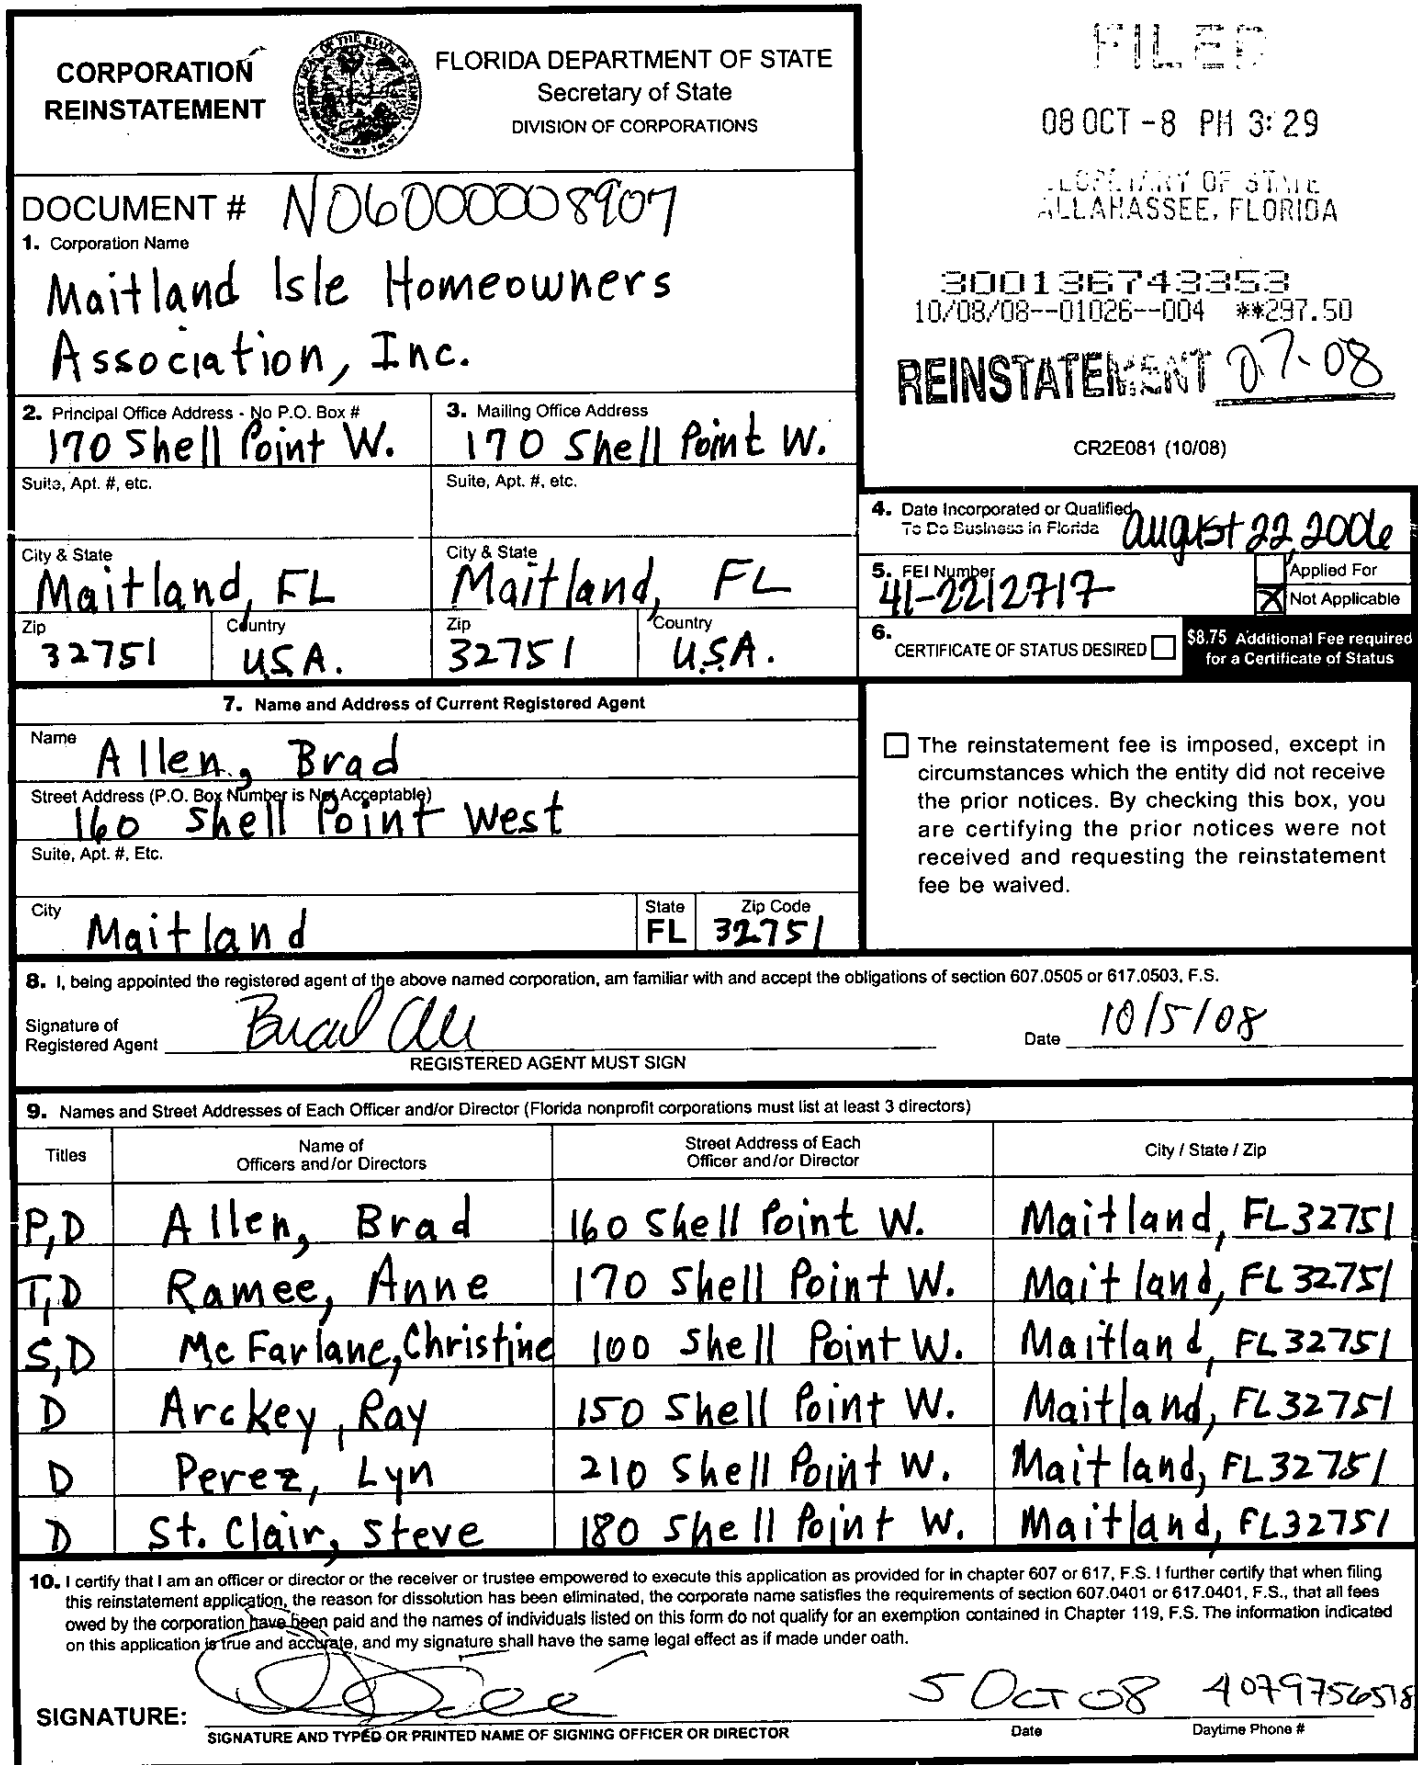 CORPORATION
REINSTATEMENT
FLORIDA DEPARTMENT OF STATE
Secretary of State
DIVISION OF CORPORATIONS
FILED
08 OCT -8 PM 3:29
OF STATE
ALLAHASSEE, FLORIDA
DOCUMENT # N06000008907
1. Corporation Name
Maitland Isle Homeowners
Association, Inc.
300136743353
10/08/08--01026--004 **297.50
REINSTATEMENT 07-08
CR2E081 (10/08)
2. Principal Office Address - No P.O. Box #
170 Shell Point W.
3. Mailing Office Address
170 Shell Point W.
Suite, Apt. #, etc.
Suite, Apt. #, etc.
4. Date Incorporated or Qualified
To Do Business in Florida
August 22, 2006
City & State
Maitland, FL
City & State
Maitland, FL
5. FEI Number
41-2212717
Applied For
X Not Applicable
Zip
32751
Country
U.S.A.
Zip
32751
Country
U.S.A.
6. CERTIFICATE OF STATUS DESIRED
$8.75 Additional Fee required
for a Certificate of Status
7. Name and Address of Current Registered Agent
Name
Allen, Brad
Street Address (P.O. Box Number is Not Acceptable)
160 Shell Point West
Suite, Apt. #, Etc.
City
Maitland
State
FL
Zip Code
32751
The reinstatement fee is imposed, except in
circumstances which the entity did not receive
the prior notices. By checking this box, you
are certifying the prior notices were not
received and requesting the reinstatement
fee be waived.
8. I, being appointed the registered agent of the above named corporation, am familiar with and accept the obligations of section 607.0505 or 617.0503, F.S.
Signature of
Registered Agent
Brad
Date 10/5/08
REGISTERED AGENT MUST SIGN
9. Names and Street Addresses of Each Officer and/or Director (Florida nonprofit corporations must list at least 3 directors)
Titles
Name of
Officers and/or Directors
Street Address of Each
Officer and/or Director
City / State / Zip
P,D Allen, Brad 160 Shell Point W. Maitland, FL 32751
T,D Ramee, Anne 170 Shell Point W. Maitland, FL 32751
S,D McFarlane, Christine 100 Shell Point W. Maitland, FL 32751
D Arckey, Ray 150 Shell Point W. Maitland, FL 32751
D Perez, Lyn 210 Shell Point W. Maitland, FL 32751
D St. Clair, Steve 180 Shell Point W. Maitland, FL 32751
10. I certify that I am an officer or director or the receiver or trustee empowered to execute this application as provided for in chapter 607 or 617, F.S. I further certify that when filing
this reinstatement application, the reason for dissolution has been eliminated, the corporate name satisfies the requirements of section 607.0401 or 617.0401, F.S., that all fees
owed by the corporation have been paid and the names of individuals listed on this form do not qualify for an exemption contained in Chapter 119, F.S. The information indicated
on this application is true and accurate, and my signature shall have the same legal effect as if made under oath.
SIGNATURE:
5 OCT 08 4079756518
SIGNATURE AND TYPED OR PRINTED NAME OF SIGNING OFFICER OR DIRECTOR
Date
Daytime Phone #